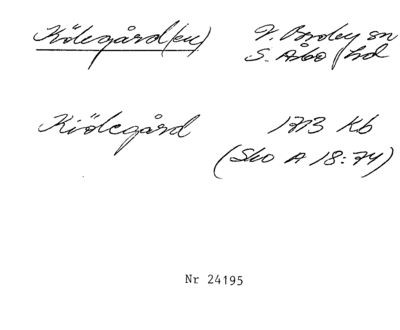 Kölegård(en) V. Broby sn
S. Åsbo hd
Kiölegård 1713 Kb
(Sko A 18:74)
Nr 24195